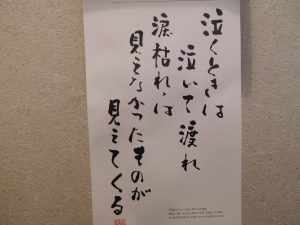 泣くときは
泣いて渡れ
涙枯れれば
見えなかったものが
見えてくる
There is a time for crying.